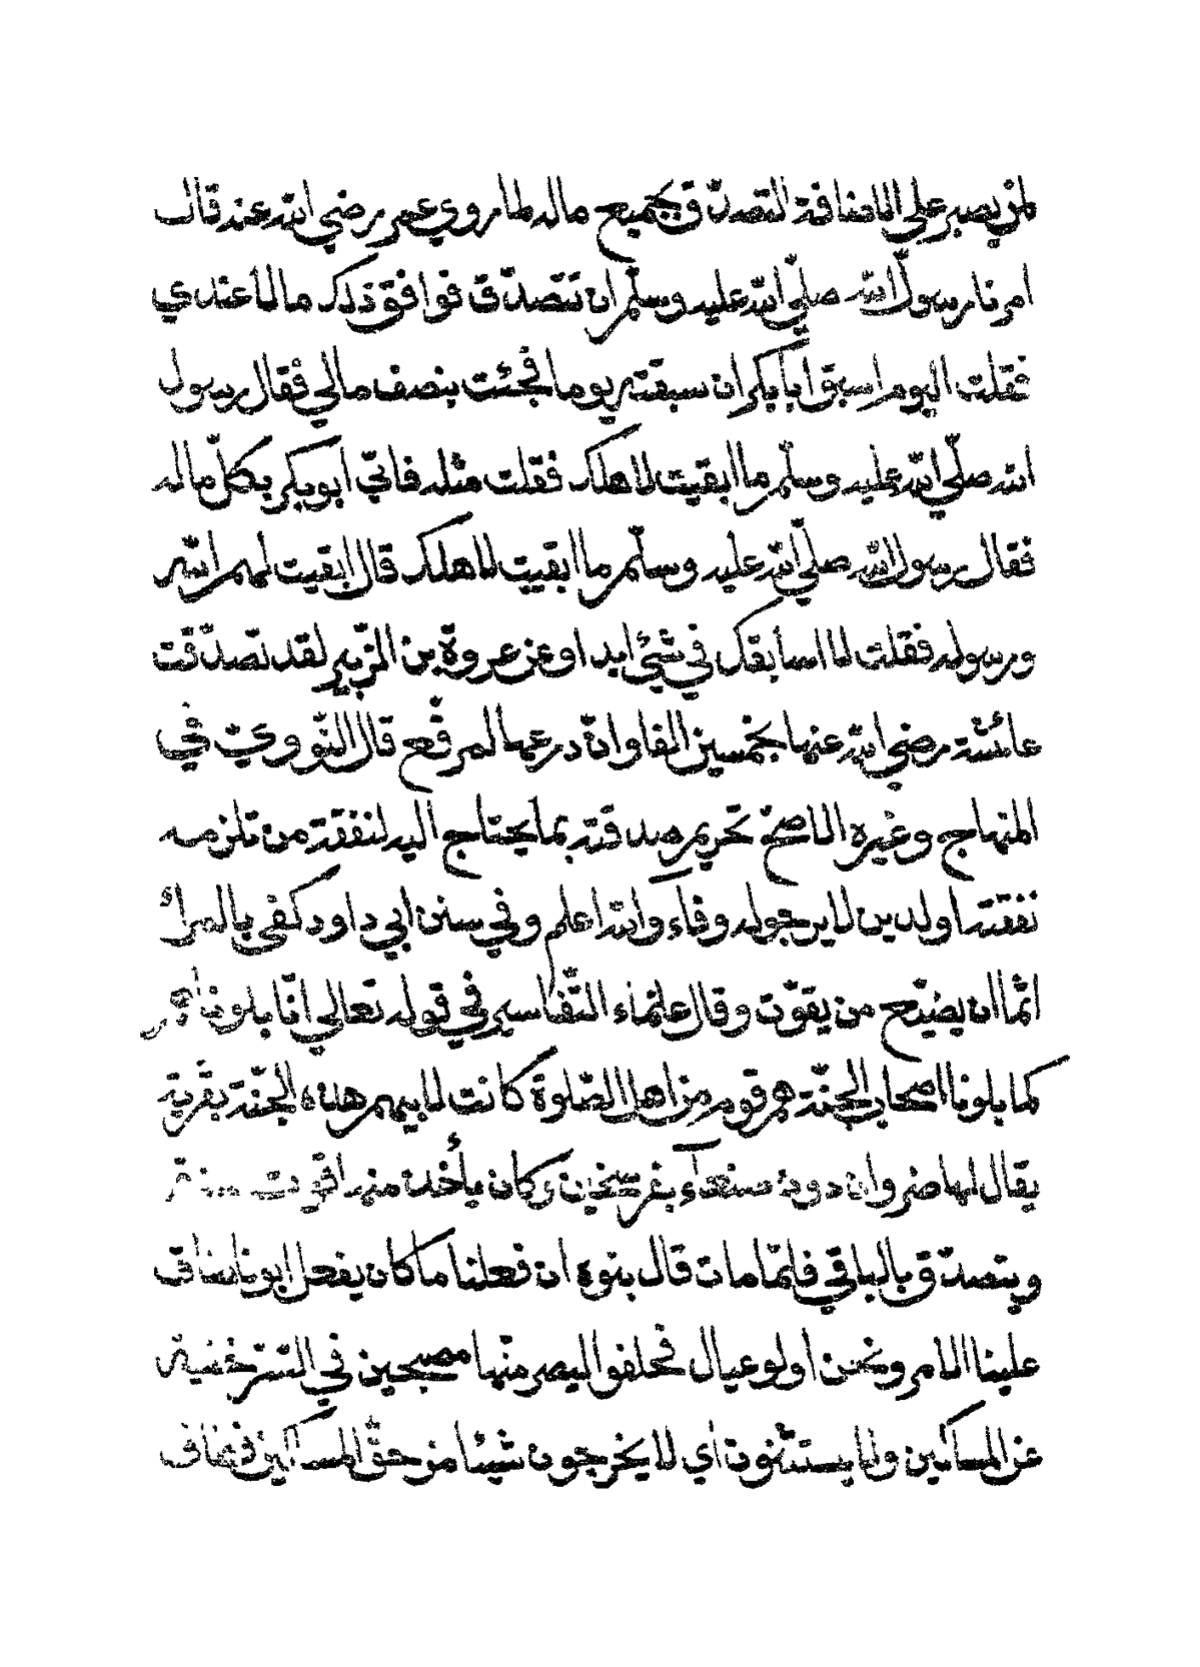 لمن يصبر على الاضافة التصدق بجميع ماله لما روي عمر رضي الله عنه قال
امرنا رسول الله صلّي الله عليه وسلّم ان نتصدّق فوافق ذلك مالا عندي
فقلت اليوم اسبق أبا بكر ان سبقته يوما فجئت بنصف مالي فقال رسول
الله صلّي الله عليه وسلّم ما ابقيت لاهلك فقلت مثله فاتي ابو بكر بكلّ ماله
فقال رسول الله صلّي الله عليه وسلّم ما ابقيت لاهلك قال ابقيت لهم الله
ورسوله فقلت لا اسابقك في شيئ ابدا وعن عروة بن الزّبير لقد تصدّقت
عائشة رضي الله عنها بخمسين الفا وانّ درعها لمرقّع قال النّووي في
المنهاج وغيره الاصحّ تحريم صدقته بما يحتاج اليه لنفقة من تلزمه
نفقته او لدين لا يرجو له وفاء والله اعلم وفي سنن ابي داود كفى بالمرأ
اثما ان يضيّع من يقوّت وقال علماء التّفاسير في قوله تعالي انّا بلوناهم
كما بلونا اصحاب الجنّة هم قوم من اهل الصّلوة كانت لابيهم هذه الجنّة بقرية
يقال لها ضروان دون صنعآء بفرسخين وكان يأخذ منها قوت سنة
ويتصدّق بالباقي فلمّا مات قال بنوه ان فعلنا ما كان يفعل ابونا ضاق
علينا الامر ونحن اولو عيال فحلفوا ليصرمنّها مصبحين في السّرّ خفية
عن المساكين ولا يستثنون اي لا يخرجون شيئا من حقّ المساكين فطاف